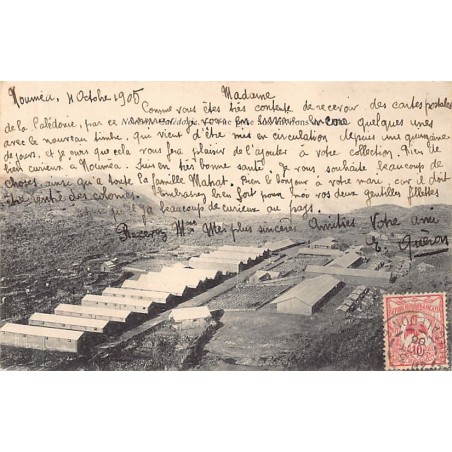 Nouméa, 4 Octobre 1905
Madame
Comme vous êtes très contente de recevoir des cartes postales
de la Calédonie, par ce je vous en encore quelques unes
avec le nouveau timbre, qui vient d'être mis en circulation depuis une quinzaine
de jours, et je crois que cela vous fera plaisir de l'ajouter à votre collection. Rien de
bien curieux à Nouméa. Suis en très bonne santé. Je vous souhaite beaucoup de
choses ainsi qu'a toute la famille Bien le bonjour à votre mari, car il doit
être rentré des colonies. Embrassez bien fort pour moi vos deux gentilles fillettes
y a beaucoup de curieux au pays.
Recevez Mme Mes plus sincères Amitiés Votre ami
E. Guéron